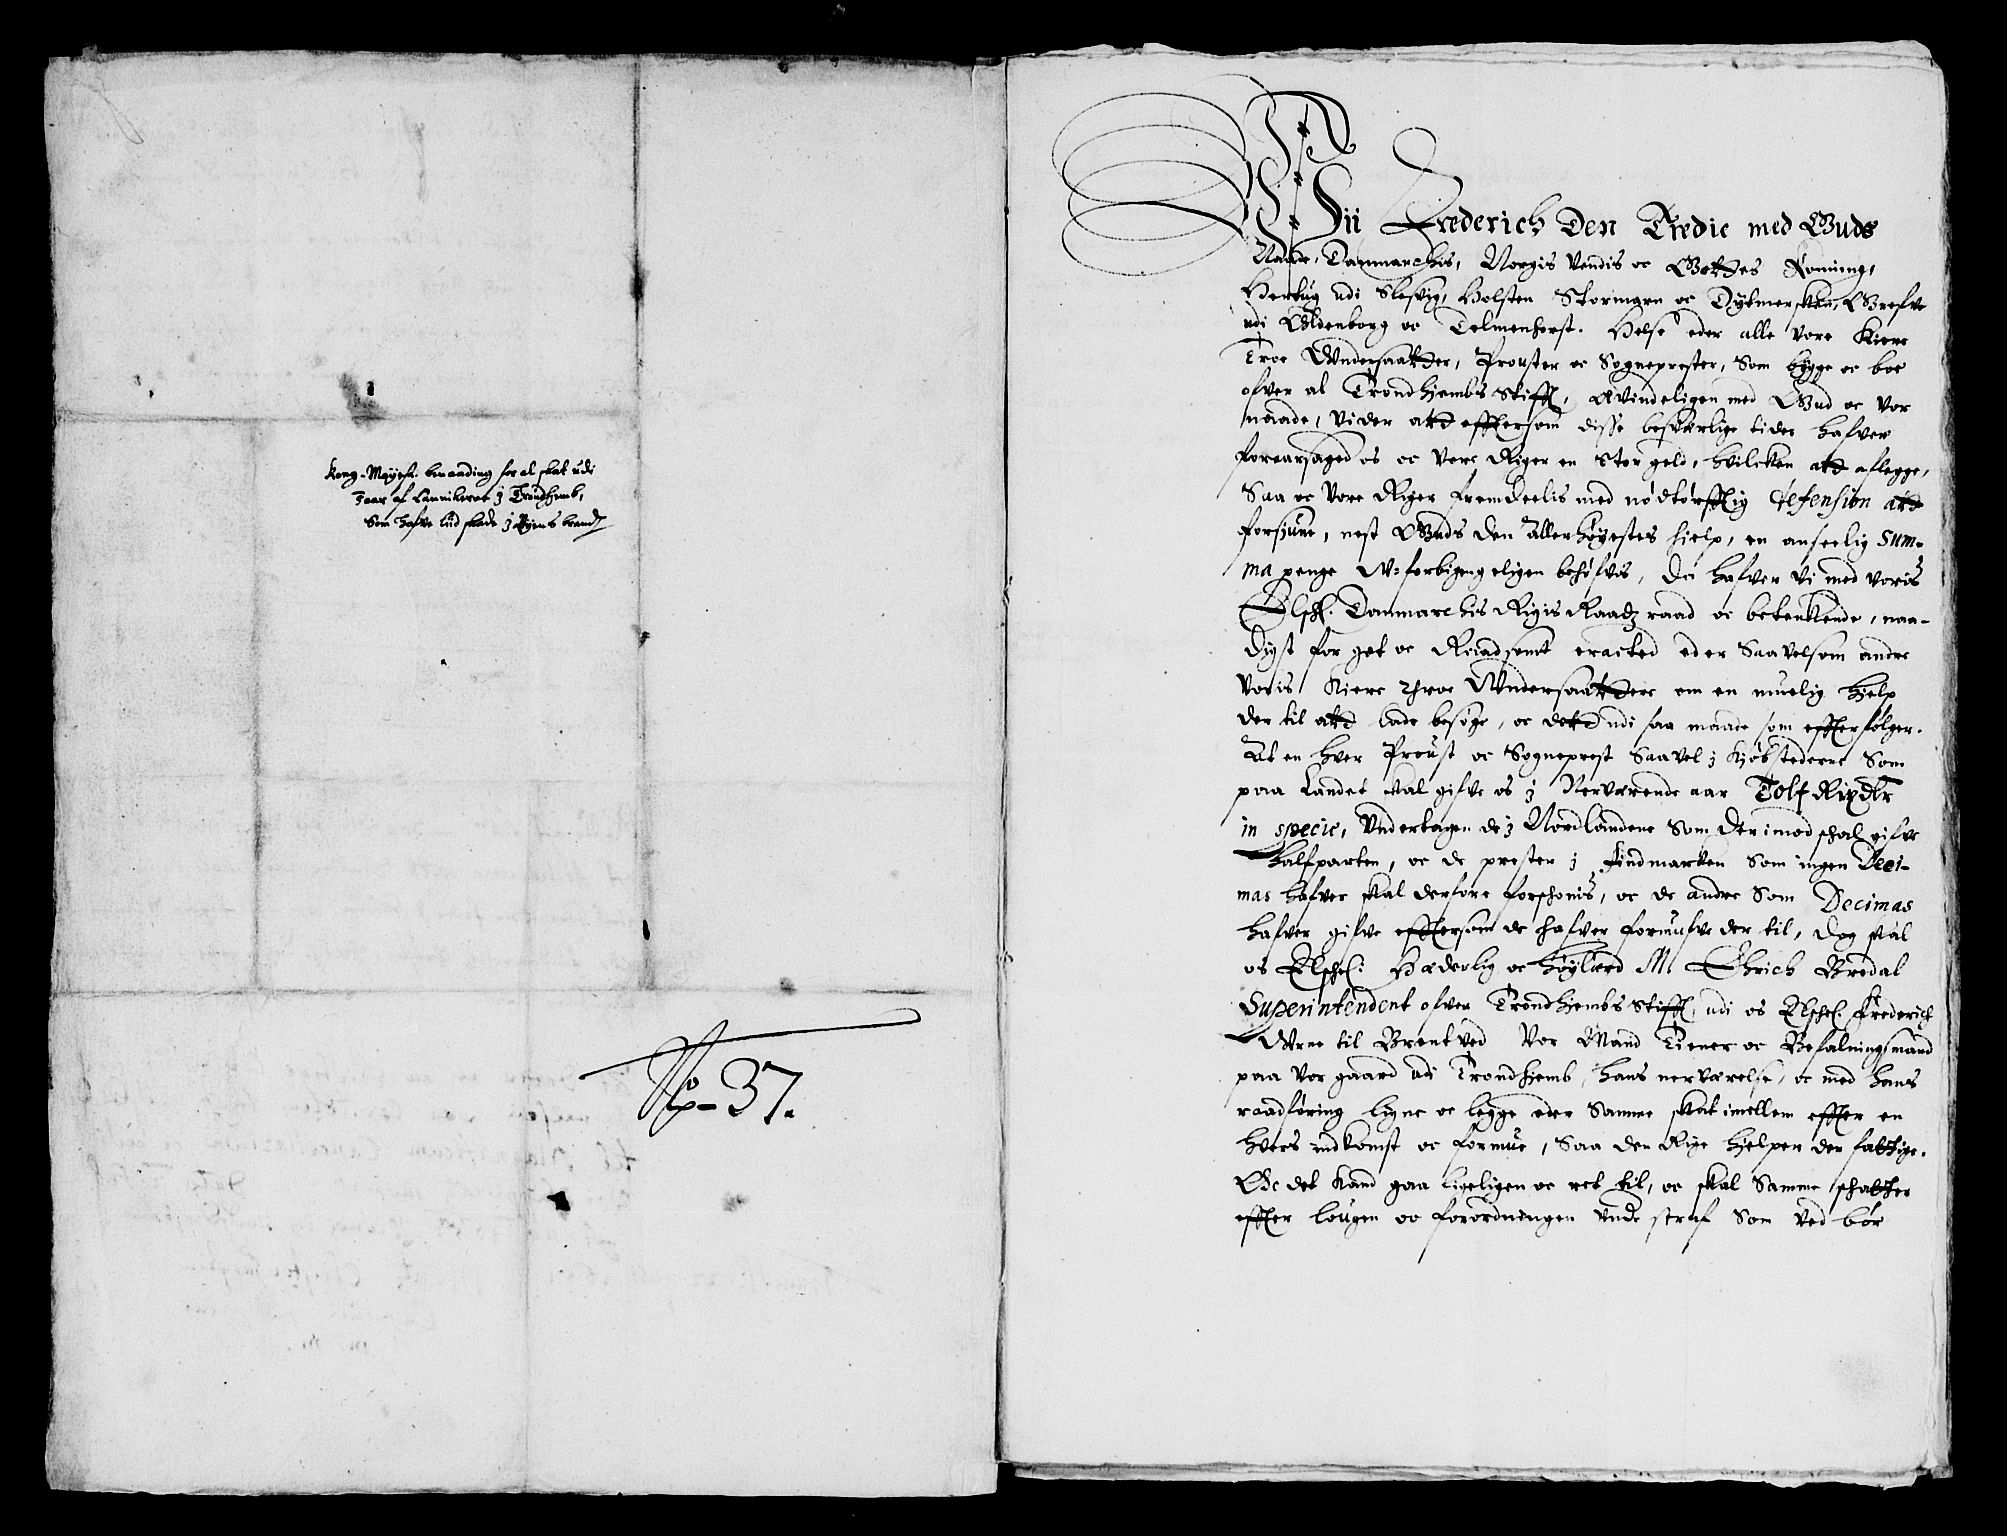 Kong: Mayst: benaading for al skat udi
3 aar af Lannikerne j Trundhemb,
Som hafve lid skade j Byens brand
No= 37.
Wii Frederich Den Tredie med Guds
Naade, Danmarchis, Norgis Vendis oc Gottes Konning,
Hertug udi Slesvig, Holsten Stormarn oc Dytmersken, Grefve
udi Oldenborg oc Delmenhorst. Helse eder alle vore kiere
Troe Undersaatter, Prouster oc Sogneprester, Som bygge oc boe
ofver al Trondhjembs Stifft, Ævindeligen med Gud oc Vor
naade, Vider att efftersom disse besværlige tider hafver
foraarsaged os oc Vore Riger en Stor geld, hvilcken att aflegge,
Saa oc Vore Riger fremdeelis med nødtørfftig defension att
forsiune, nest Guds den Allerhøyestes hielp, en anseelig Sum-
ma penge W-forbigengeligen behøfvis, Da hafver Vi med voris
Elsch: Danmarchis Rigis Raadz raad oc betenkende, naa-
digst for got oc Raadsomt eracted eder Saavelsom andre
Voris kiere Throe Undersaattere om en muelig hielp
der til att lade besøge, oc dett udi saa maade som effterfølger.
At en hver Proust oc Sogneprest Saavel j Kjøbstederne Som
paa Landet skal gifve os j Nerværende aar Tolf Rixdlr
in specie, Undertagen de j Nordlandene Som derimod schal gifve
halfparten, oc de prester j Findmarken Som ingen Deci-
mas hafver skal derfore forschonis, oc de andre Som Decimas
hafver gifve efftersom de hafver formufve der til, dog skal
os Elschel: Hæderlig oc Høylærd M Ehrich Bredal
Superintendent ofver Trondhjembs Stifft, udi os Elschel: Frederich
Urne til Brentved Vor Mand Tiener oc Befalningsmand
paa Vor gaard udi Trondhjemb, hans nerværelse, oc med hans
raadføring ligne oc legge eder Samme skat imellem effter en
hvers indkomst oc formue, Saa den Rige hielper den fattige.
Oc det kand gaa ligeligen oc ret til, oc skal Samme schatter
effter lougen oc forordningen Unde straf Som Ved bør